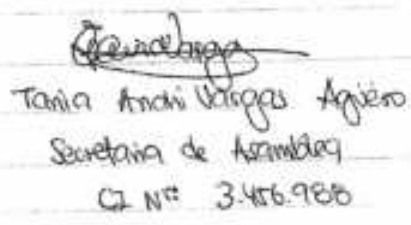 Tania Andri Vargas Agüero
Secretaria de Asamblea
CI Nº 3.456.988